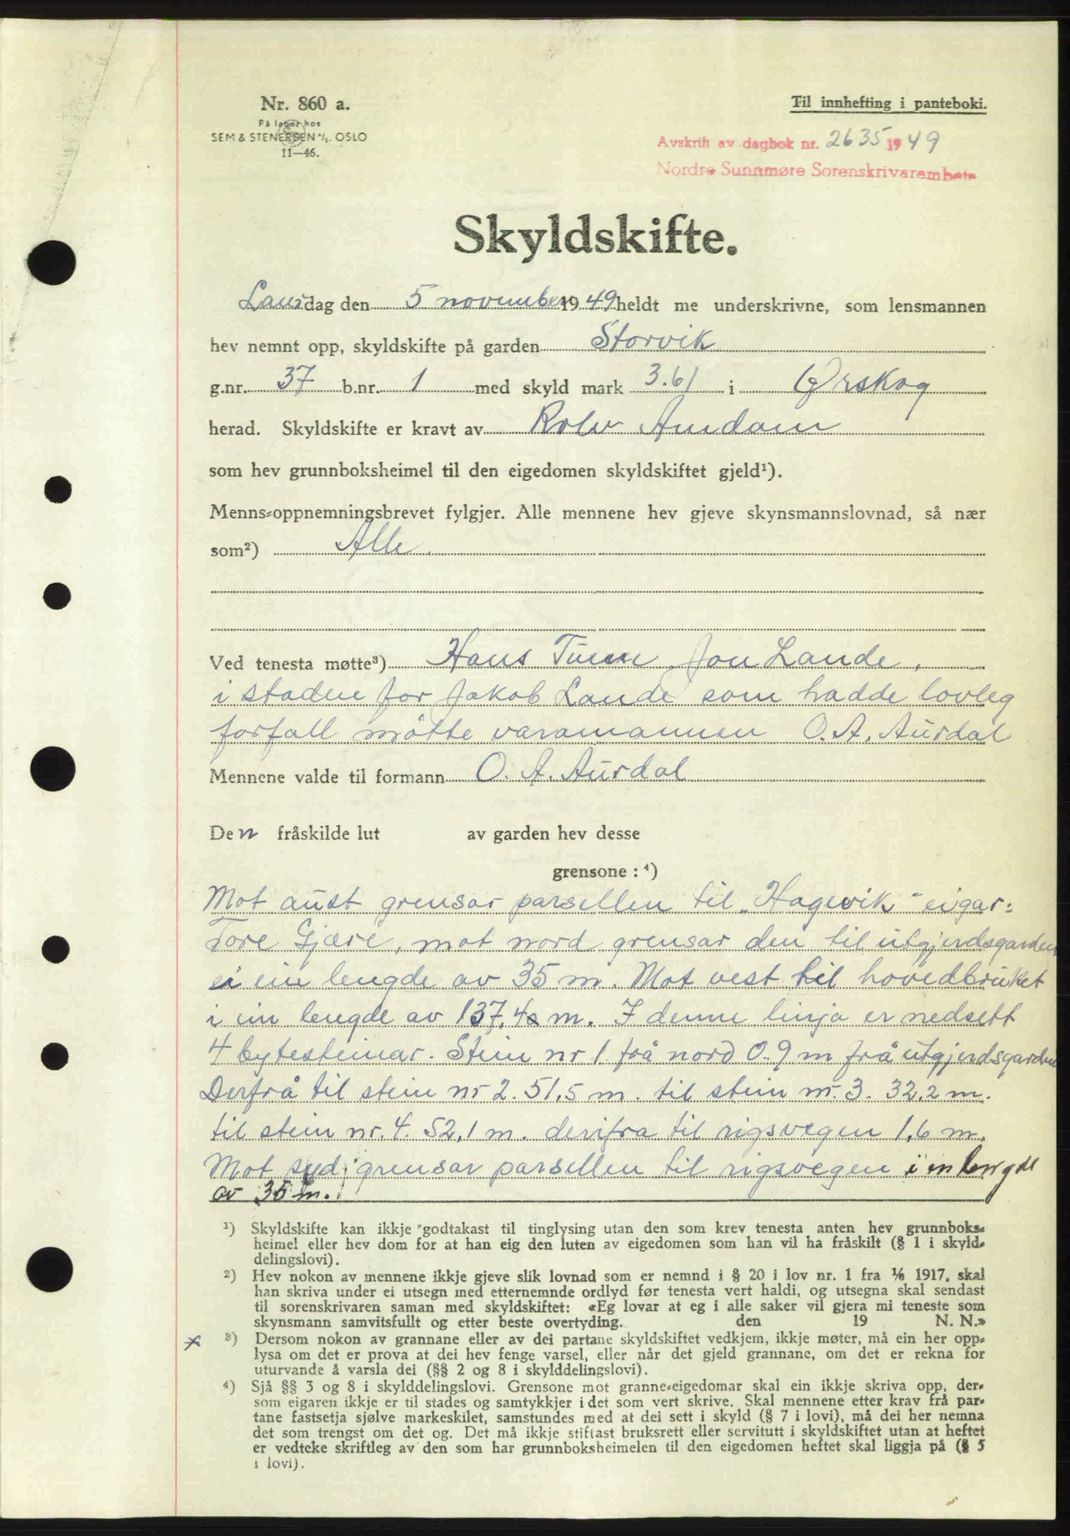 Nr. 860 a.
På lager hos
SEM & STENERSEN A/S. OSLO
11—46.
Til innhefting i panteboki.
Avskrift av dagbok nr. 2635 1949
Nordre Sunnmøre Sorenskrivarembete
Skyldskifte.
Laurdag den 5 november 1949 heldt me underskrivne, som lensmannen
hev nemnt opp, skyldskifte på garden Storvik
g.nr. 37 b.nr. 1 med skyld mark 3.61 i Ørskog
herad. Skyldskifte er kravt av Rolv Amdam
som hev grunnboksheimel til den eigedomen skyldskiftet gjeld¹).
Menns-oppnemningsbrevet fylgjer. Alle mennene hev gjeve skynsmannslovnad, så nær
som²) Alle.
Ved tenesta møtte³) Hans Jon Lande,
i staden for Jakob Lande som hadde lovleg
forfall møtte varamannen O. A. Aurdal
Mennene valde til formann O. A. Aurdal
Den fråskilde lut av garden hev desse
grensone : ⁴)
Mot aust grensar parsellen til „Hagevik" eigar:
Tore Gjære, mot nord grensar den til utgjerdsgarden
i ein lengde av 35 m. Mot vest til hovedbruket
i ein lengde av 137.4 m. I denne linja er nedsett
4 bytesteinar. Stein nr 1 frå nord 0.9 m frå utgjerdsgarden
Derfrå til stein nr 2. 51,5 m. til stein nr. 3. 32,2 m.
til stein nr. 4. 52,1 m. derifra til rigsvegen 1,6 m.
Mot syd grensar parsellen til rigsvegen i ein lengde
av 35 m.
¹) Skyldskifte kan ikkje godtakast til tinglysing utan den som krev tenesta anten hev grunnboks-
heimel eller hev dom for at han eig den luten av eigedomen som han vil ha fråskilt (§ 1 i skyld-
delingslovi).
²) Hev nokon av mennene ikkje gjeve slik lovnad som er nemnd i § 20 i lov nr. 1 fra 1/6 1917, skal
han skriva under ei utsegn med etternemnde ordlyd før tenesta vert haldi, og utsegna skal sendast
til sorenskrivaren saman med skyldskiftet: «Eg lovar at eg i alle saker vil gjera mi teneste som
skynsmann samvitsfullt og etter beste overtyding. den 19 N. N.»
³) Dersom nokon av grannane eller av dei partane skyldskiftet vedkjem, ikkje møter, må ein her opp-
lysa om det er prova at dei hev fenge varsel, eller når det gjeld grannane, om det er rekna for
uturvande å varsla dei (§§ 2 og 8 i skylddelingslovi).
⁴) Sjå §§ 3 og 8 i skylddelingslovi. Grensone mot granne-eigedomar skal ein ikkje skriva opp, der-
som eigaren ikkje er til stades og samtykkjer i det som vert skrive. Skal mennene etter krav frå par-
tane fastsetja sjølve markeskilet, samstundes med at dei sett i skyld (§ 7 i lovi), må dei her nemna
det som trengst om det og. Det må ikkje stiftast bruksrett eller servitutt i skyldskiftet utan at heftet
er vedteke skriftleg av den som har grunnboksheimelen til den eigedomen heftet skal liggja på (§ 5
i lovi).